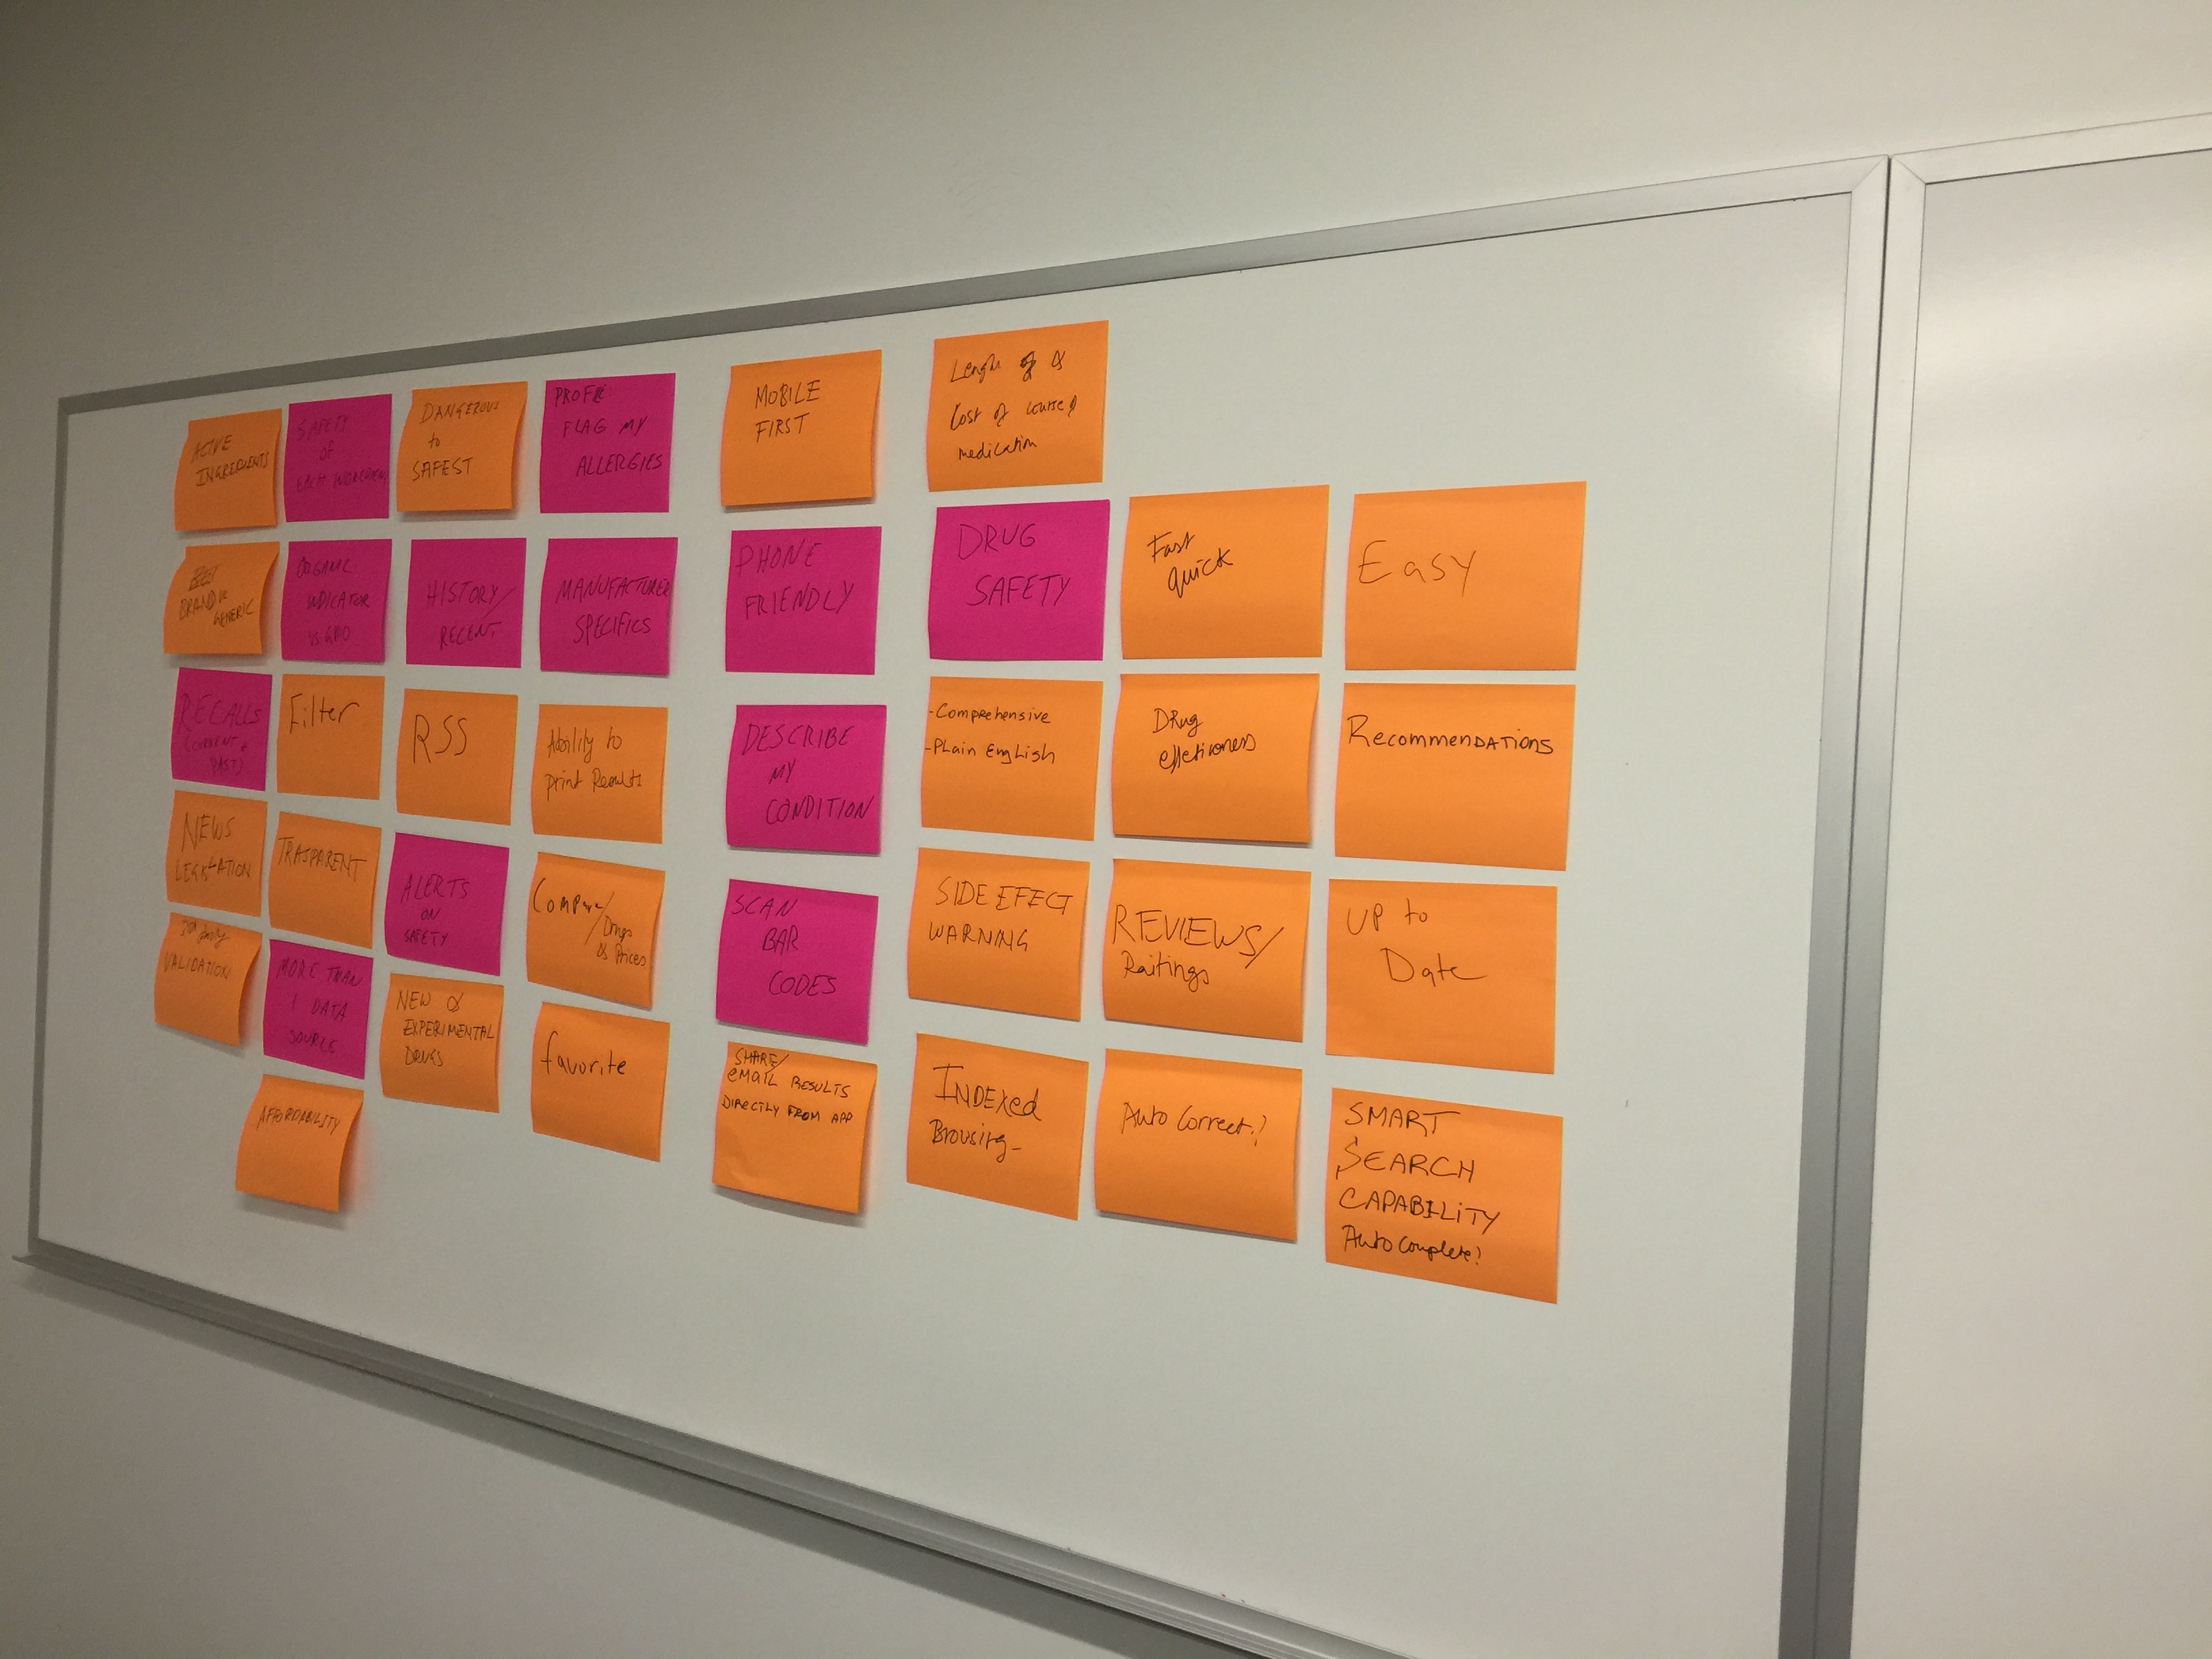 ACTIVE
INGREDIENTS
SAFETY
of
EACH INGREDIENT
DANGEROUS
to
SAFEST
FLAG MY
ALLERGIES
MOBILE
FIRST
Length of &
Cost of course of
medication
BRAND vs
GENERIC
ORGANIC
INDICATOR
vs GMO
HISTORY/
RECENT
MANUFACTURER
SPECIFICS
PHONE
FRIENDLY
DRUG
SAFETY
Fast
Quick
Easy
RECALLS
(CURRENT &
PAST)
Filter
RSS
Ability to
print Results
DESCRIBE
MY
CONDITION
-Comprehensive
-Plain English
DRug
effectiveness
RecommenDATIONS
NEWS
LEGISLATION
TRASPARENT
ALERTS
ON
SAFETY
Compare/
Drugs
& Prices
SCAN
BAR
CODES
SIDE EFFECT
WARNING
REVIEWS/
Raitings
UP to
Date
3rd party
VALIDATION
MORE THAN
1 DATA
SOURCE
NEW &
EXPERIMENTAL
DRUGS
favorite
SHARE/
eMAIL RESULTS
DIRECTLY FROM APP
INDEXed
Browsing-
Auto Correct?
SMART
SEARCH
CAPABILITY
Auto Complete?
AFFORDABILITY